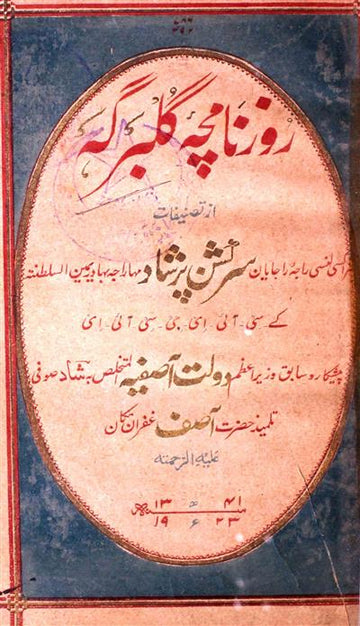 روزنامچہ گلبرگہ
از تصنیفات
ہز اکسی لنسی راجۂ راجایان سرکشن پرشاد مہاراجہ بہادر یمین السلطنتہ
کے سی۔ آئی۔ ای۔ جی۔ سی۔ آئی۔ ای
پیشکار و سابق وزیر اعظم دولت آصفیہ المتخلص بہ شاد صوفی
تلمیذ حضرت آصف غفران مکان
علیہ الرحمتہ
سنہ ۱۳۴۱ ھ
۱۹۲۳ ء